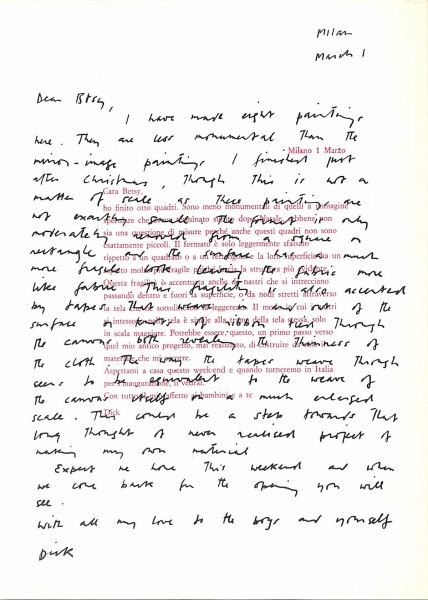 Milan
March 1
Dear Betsy,
I have made eight paintings
here. They are less monumental than the
mirror-image paintings I finished just
after Christmas, though this is not a
matter of scale as these paintings are
not exactly small. The format is only
moderately removed from a square or
rectangle and the surface has a much
more fragile look being the fabric more
like fabric. This fragility is also accented
by tapes that weave in and out of the
surface or knots of ribbon tied through
the canvas both revealing the thinness of
the cloth. The way the tapes weave through
seems to be equivalent to the weave of
the canvas itself on a much enlarged
scale. This could be a step towards that
long thought of never realised project of
making my own material
Expect me home this weekend and when
we come back for the opening you will
see.
with all my love to the boys and yourself
Dick
Milano 1 Marzo
Cara Betsy,
ho finito otto quadri. Sono meno monumentali di quelli a immagine
speculare che ho terminato subito dopo Natale, sebbene non
sia una questione di misure perché anche questi quadri non sono
esattamente piccoli. Il formato è solo leggermente sfalsato
rispetto a un quadrato o a un rettangolo e la loro superficie ha un
aspetto molto più fragile
Questa fragilità è accentuata anche da nastri che si intrecciano
passando dentro e fuori la superficie, o da nodi stretti attraverso
la tela che ne sottolineano la leggerezza. Il modo in cui i nastri
si intessono nella tela è simile alla trama della tela stessa, solo
in scala maggiore. Potrebbe essere, questo, un primo passo verso
quel mio antico progetto, mai realizzato, di costruire da me i
materiali che mi occorre.
Aspettami a casa questo week-end e quando torneremo in Italia
per l'inaugurazione, li vedrai.
Con tutto il mio affetto ai bambini e a te
Dick